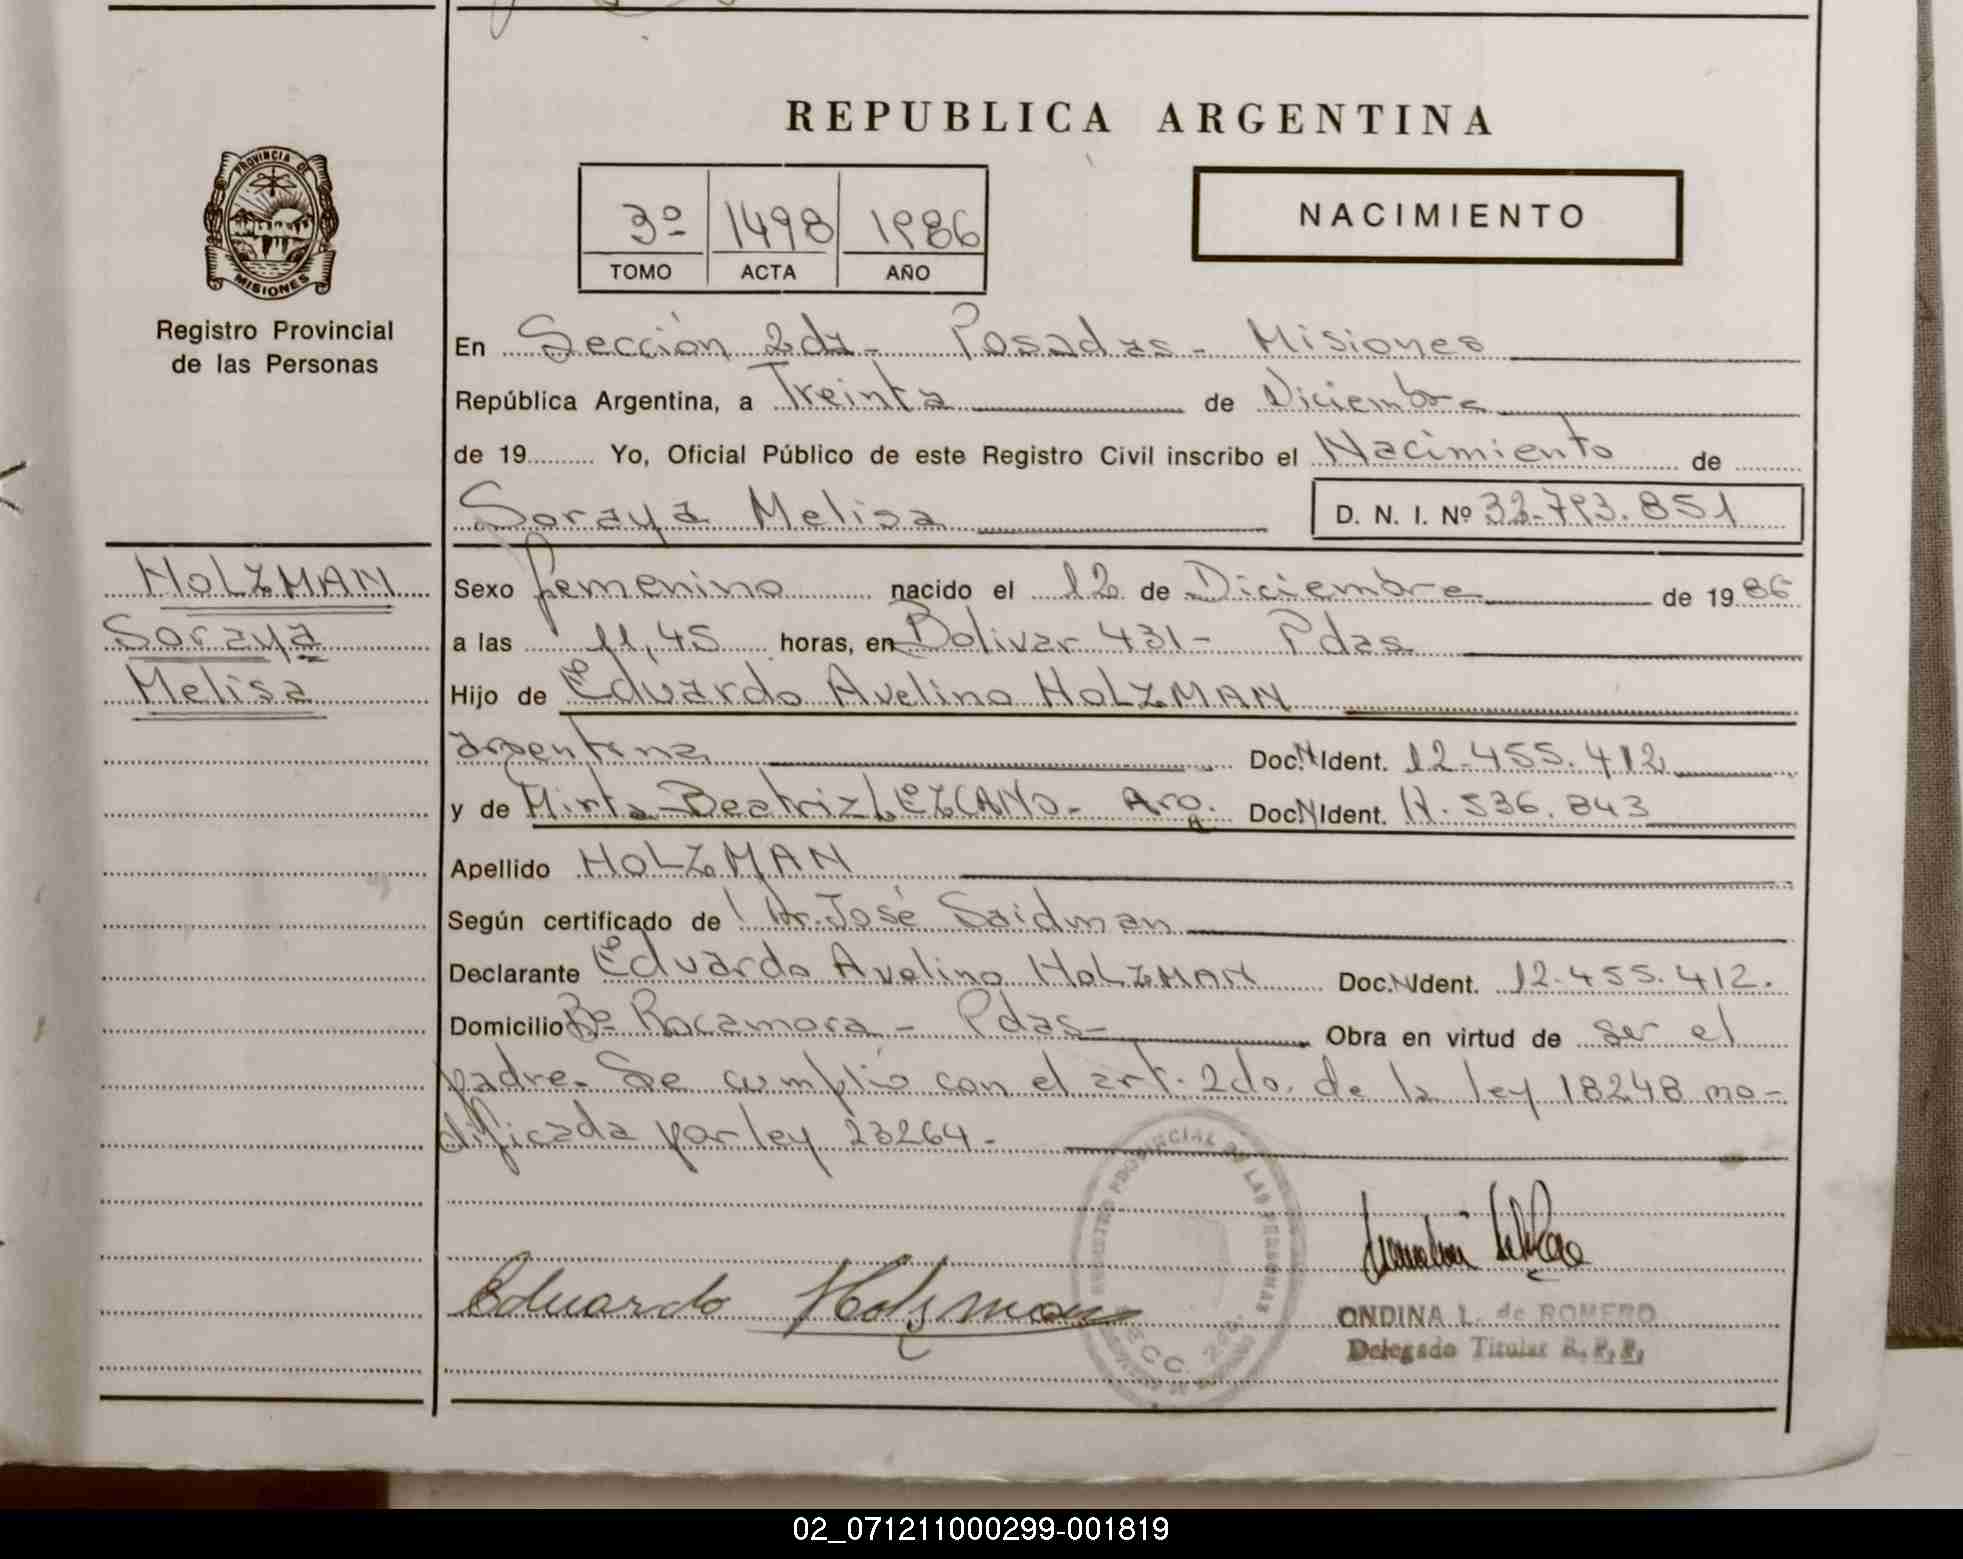 REPUBLICA ARGENTINA
PROVINCIA DE
MISIONES
Registro Provincial
de las Personas
3º 1498 1986
TOMO ACTA AÑO
NACIMIENTO
En Sección 2da - Posadas - Misiones
República Argentina, a Treinta de Diciembre
de 19.......... Yo, Oficial Público de este Registro Civil inscribo el Nacimiento de
Soraya Melisa D. N. I. Nº 32.793.851
HOLZMAN
Soraya
Melisa
Sexo femenino nacido el 12 de Diciembre de 1986
a las 11,45 horas, en Bolivar 431 - Pdas
Hijo de Eduardo Avelino HOLZMAN
argentina Doc. N Ident. 12.455.412
y de Mirta Beatriz LEZCANO - Arg. Doc N Ident. 11.536.843
Apellido HOLZMAN
Según certificado de Dr. José Saidman
Declarante Eduardo Avelino HOLZMAN Doc. N Ident. 12.455.412.
Domicilio Bº Rocamora - Pdas - Obra en virtud de ser el
padre. Se cumplió con el art. 2do. de la ley 18248 mo-
dificada por ley 23264.-
REGISTRO PROVINCIAL DE LAS PERSONAS
SECC. 2da.
Eduardo Holzman
ONDINA L. de ROMERO
Delegado Titular R. P. P.
02_071211000299-001819